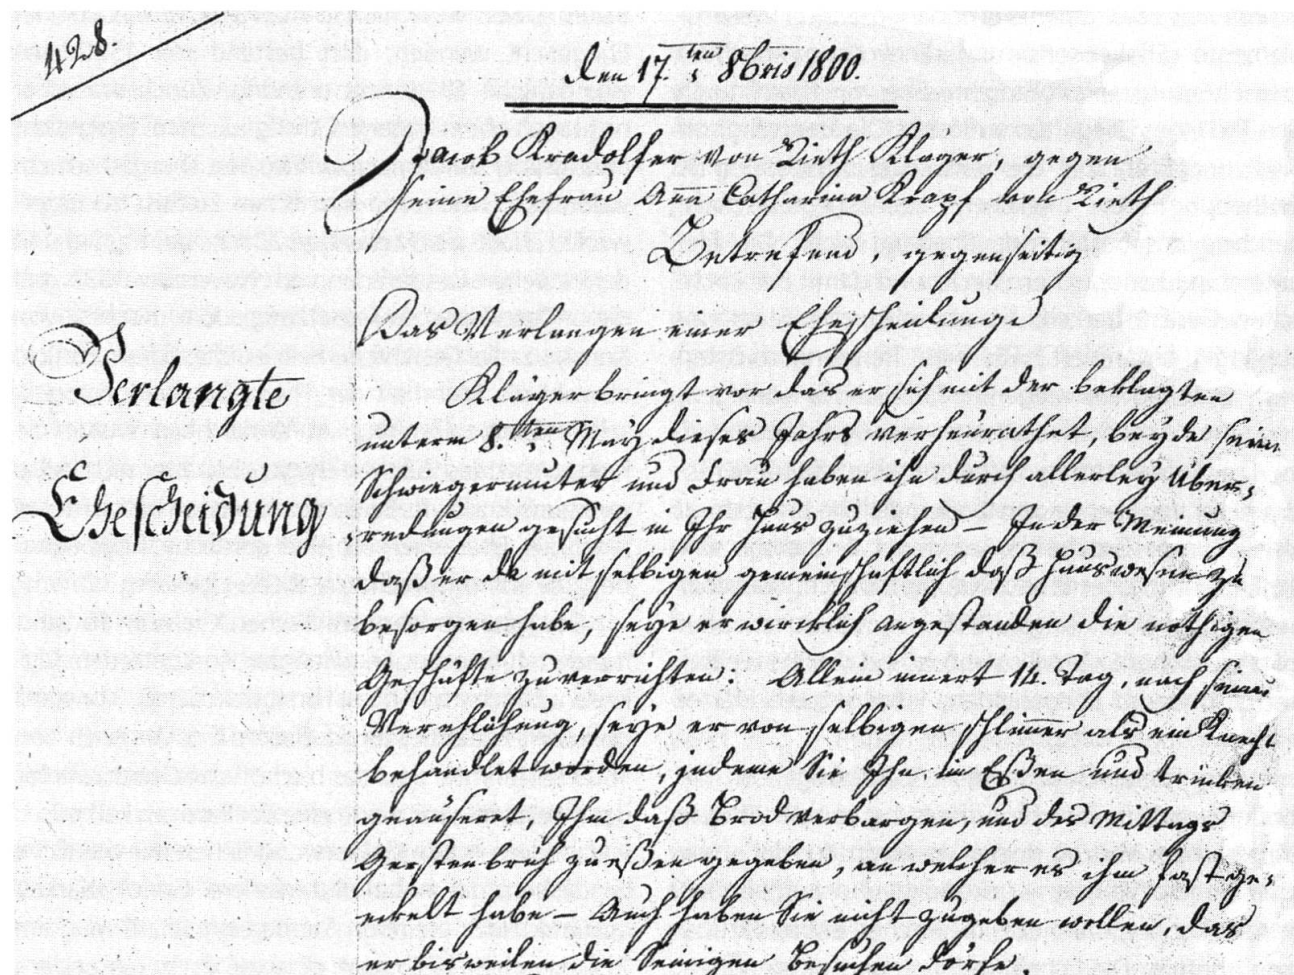 428
den 17.ten 8bris 1800.
Jacob Kradolfer von Rieth Klager, gegen
seine Ehefrau Aña Catharina Krapf von Rieth
Betrefend, gegenseitig
Das Verlangen einer Ehescheidung
Verlangte
Ehescheidung
Klager bringt vor das er sich mit der beklagten
unterm 8.ten Merz dieses Jahrs verheurathet, beyde sein
Schwegermuter und Frau haben ihn durch allerley Über-
redungen gesucht in Ihr Haus zuziehen – In der Meinung
daß er da mit selbigen gemeinschaftlich daß Hauswesen zu
besorgen habe, seye er wircklich angestanden die nöthigen
Geschäfte zuverrichten. Allein innert 14. Tag, nach seiner
Verehlichung seye er von selbigen schlim̄er als ein Knecht
behandlet worden, indeme Sie Ihn im Eßen und trinken
geäuseret, Ihm daß Brod verbargen, und des Mittags
Gerstenbrüh zu eßen gegeben, an welcher es ihm fast ge-
eckelt habe – Auch haben Sie nicht zugeben wollen, das
er bisweilen die Seinigen Besuchen dörfe,